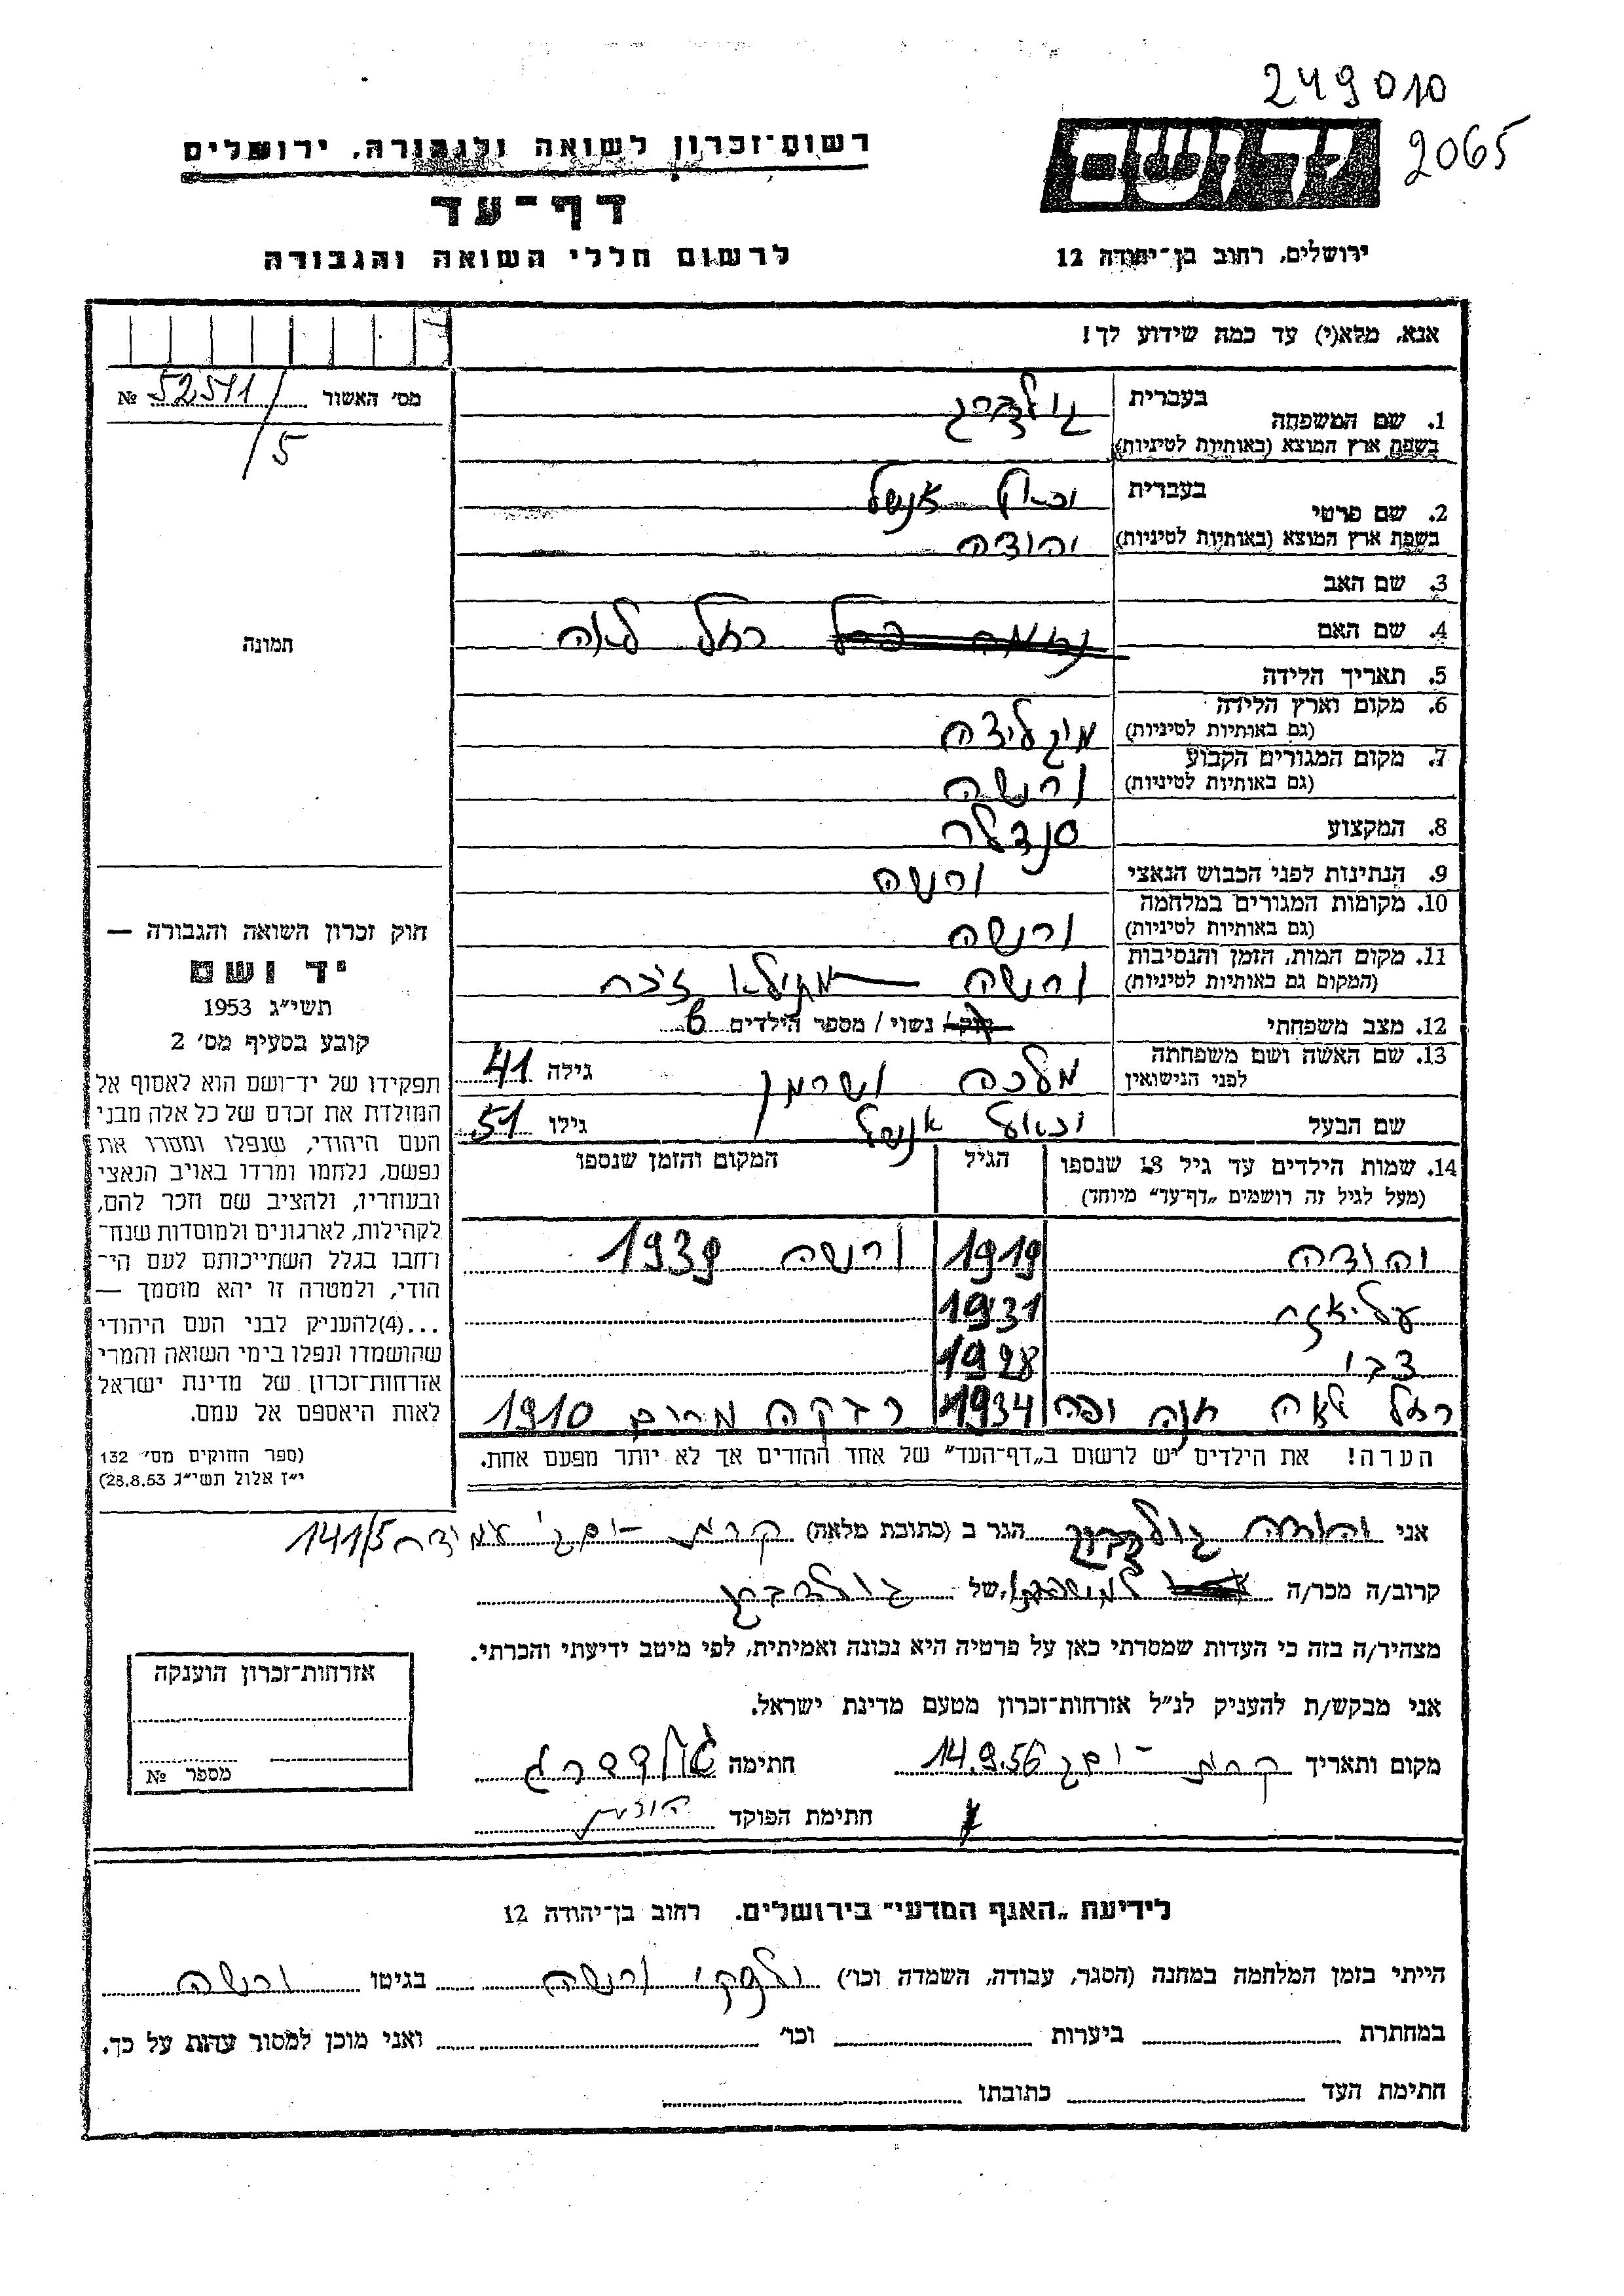 249010
2065
ידושם
רשות־זכרון לשואה ולגבורה, ירושלים
דף־עד
לרשום חללי השואה והגבורה
ירושלים, רחוב בן־יהודה 12
אנא, מלא(י) עד כמה שידוע לך!
מס׳ האשור № 52511/5
1. שם המשפחה בעברית גולדברג
בשפת ארץ המוצא (באותיות לטיניות)
2. שם פרטי בעברית אנשל
בשפת ארץ המוצא (באותיות לטיניות) יהודה
3. שם האב
4. שם האם רחל לאה
5. תאריך הלידה
6. מקום וארץ הלידה
(גם באותיות לטיניות)
7. מקום המגורים הקבוע ורשה
(גם באותיות לטיניות)
8. המקצוע סנדלר
9. הנתינות לפני הכבוש הנאצי ורשה
10. מקומות המגורים במלחמה ורשה
(גם באותיות לטיניות)
11. מקום המות, הזמן והנסיבות ורשה
(המקום גם באותיות לטיניות)
12. מצב משפחתי נשוי / מספר הילדים 6
13. שם האשה ושם משפחתה מלכה גילה 41
לפני הנישואין
שם הבעל אנשל גילו 51
14. שמות הילדים עד גיל 18 שנספו הגיל המקום והזמן שנספו
(מעל לגיל זה רושמים „דף־עד״ מיוחד)
יהודה 1919 ורשה 1939
1931
צבי 1928
רחל לאה חנה יפה 1934 רבקה מרים 1910
הערה! את הילדים יש לרשום ב„דף־העד״ של אחד ההורים אך לא יותר מפעם אחת.
תמונה
חוק זכרון השואה והגבורה —
יד ושם
תשי״ג 1953
קובע בסעיף מס׳ 2
תפקידו של יד־ושם הוא לאסוף אל
המולדת את זכרם של כל אלה מבני
העם היהודי, שנפלו ומסרו את
נפשם, נלחמו ומרדו באויב הנאצי
ובעוזריו, ולהציב שם וזכר להם,
לקהילות, לארגונים ולמוסדות שנח־
רחבו בגלל השתייכותם לעם הי־
הודי, ולמטרה זו יהא מוסמך —
...(4)להעניק לבני העם היהודי
שהושמדו ונפלו בימי השואה והמרי
אזרחות־זכרון של מדינת ישראל
לאות היאספם אל עמם.
(ספר החוקים מס׳ 132
י״ז אלול תשי״ג 28.8.53)
אני יהודה גולדברג הגר ב (כתובת מלאה) קרית 141/5
קרוב/ה מכר/ה של גולדברג
מצהיר/ה בזה כי העדות שמסרתי כאן על פרטיה היא נכונה ואמיתית, לפי מיטב ידיעתי והכרתי.
אני מבקש/ת להעניק לנ״ל אזרחות־זכרון מטעם מדינת ישראל.
מקום ותאריך קרית 14.9.56 חתימה גולדברג
חתימת הפוקד
אזרחות־זכרון הוענקה
מספר №
לידיעת „האגף המדעי״ בירושלים. רחוב בן־יהודה 12
הייתי בזמן המלחמה במחנה (הסגר, עבודה, השמדה וכו׳) ורשה בגיטו ורשה
במחתרת ביערות וכו׳ ואני מוכן למסור עדות על כך.
חתימת העד כתובתו